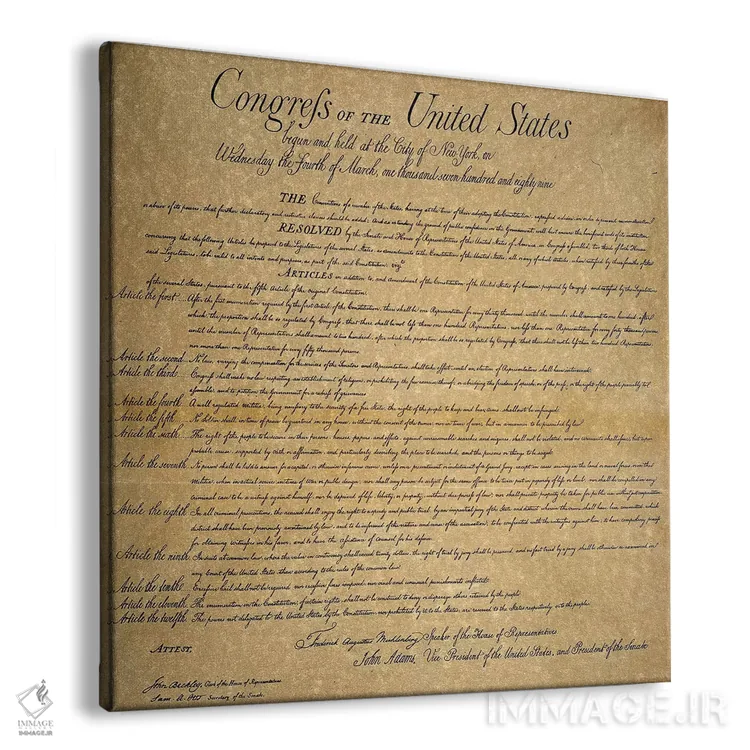 Congreſs OF THE United States
begun and held at the City of New York, on
Wednesday the Fourth of March, one thousand seven hundred and eighty nine
THE Conventions of a number of the States, having at the time of their adopting the Constitution, expressed a desire, in order to prevent misconstruction
or abuse of its powers, that further declaratory and restrictive clauses should be added; And as extending the ground of public confidence in the Government, will best ensure the beneficent ends of its institution
RESOLVED by the Senate and House of Representatives of the United States of America, in Congreſs aſsembled, two thirds of both Houses
concurring that the following Articles be proposed to the Legislatures of the several States, as amendments to the Constitution of the United States, all or any of which Articles, when ratified by three fourths of the
said Legislatures, to be valid to all intents and purposes, as part of the said Constitution. vizt
ARTICLES in addition to, and Amendment of the Constitution of the United States of America, proposed by Congreſs, and ratified by the Legislatures
of the several States, pursuant to the fifth Article of the original Constitution.
Article the first... After the first enumeration required by the first Article of the Constitution, there shall be one Representative for every thirty thousand, until the number shall amount to one hundred, after
which, the proportion shall be so regulated by Congreſs, that there shall be not leſs than one hundred Representatives, nor leſs than one Representative for every forty thousand persons
until the number of Representatives shall amount to two hundred, after which, the proportion shall be so regulated by Congreſs, that there shall not be leſs than two hundred Representatives,
nor more than one Representative for every fifty thousand persons
Article the second... No law, varying the compensation for the services of the Senators and Representatives, shall take effect, until an election of Representatives shall have intervened.
Article the third... Congreſs shall make no law respecting an establishment of religion, or prohibiting the free exercise thereof; or abridging the freedom of speech, or of the preſs, or the right of the people peaceably to
aſsemble, and to petition the Government for a redreſs of grievances
Article the fourth. A well regulated militia, being neceſsary to the security of a free State, the right of the people to keep and bear arms, shall not be infringed.
Article the fifth. No Soldier shall, in time of peace be quartered in any house, without the consent of the owner, nor in time of war, but in a manner to be prescribed by law
Article the sixth. The right of the people to be secure in their persons, houses, papers, and effects, against unreasonable searches and seizures, shall not be violated, and no warrants shall iſsue, but upon
probable cause, supported by oath or affirmation, and particularly describing the place to be searched, and the persons or things to be seized
Article the seventh. No person shall be held to answer for a capital, or otherwise infamous crime, unleſs on a presentment or indictment of a Grand Jury, except in cases arising in the land or naval forces, or in the
Militia, when in actual service in time of War or public danger; nor shall any person be subject for the same offence to be twice put in jeopardy of life or limb; nor shall be compelled in any
criminal case to be a witneſs against himself, nor be deprived of life, liberty, or property, without due proceſs of law; nor shall private property be taken for public use without just compensation
Article the eighth. In all criminal prosecutions, the accused shall enjoy the right to a speedy and public trial, by an impartial jury of the State and district wherein the crime shall have been committed, which
district shall have been previously ascertained by law, and to be informed of the nature and cause of the accusation; to be confronted with the witneſses against him; to have compulsory proceſs
for obtaining witneſses in his favor, and to have the aſsistance of Counsel for his defence
Article the ninth. In suits at common law, where the value in controversy shall exceed twenty dollars, the right of trial by jury shall be preserved, and no fact tried by a jury shall be otherwise re-examined in
any Court of the United States, than according to the rules of the common law
Article the tenth. Exceſsive bail shall not be required, nor exceſsive fines imposed, nor cruel and unusual punishments inflicted
Article the eleventh. The enumeration in the Constitution, of certain rights, shall not be construed to deny or disparage others retained by the people
Article the twelfth. The powers not delegated to the United States by the Constitution, nor prohibited by it to the States, are reserved to the States respectively, or to the people.
Frederick Augustus Muhlenberg Speaker of the House of Representatives
John Adams, Vice President of the United States, and President of the Senate
ATTEST,
John Beckley, Clerk of the House of Representatives
Sam. A. Otis Secretary of the Senate.
IMMAGE
IMMAGE.IR
IMMAGE.IR